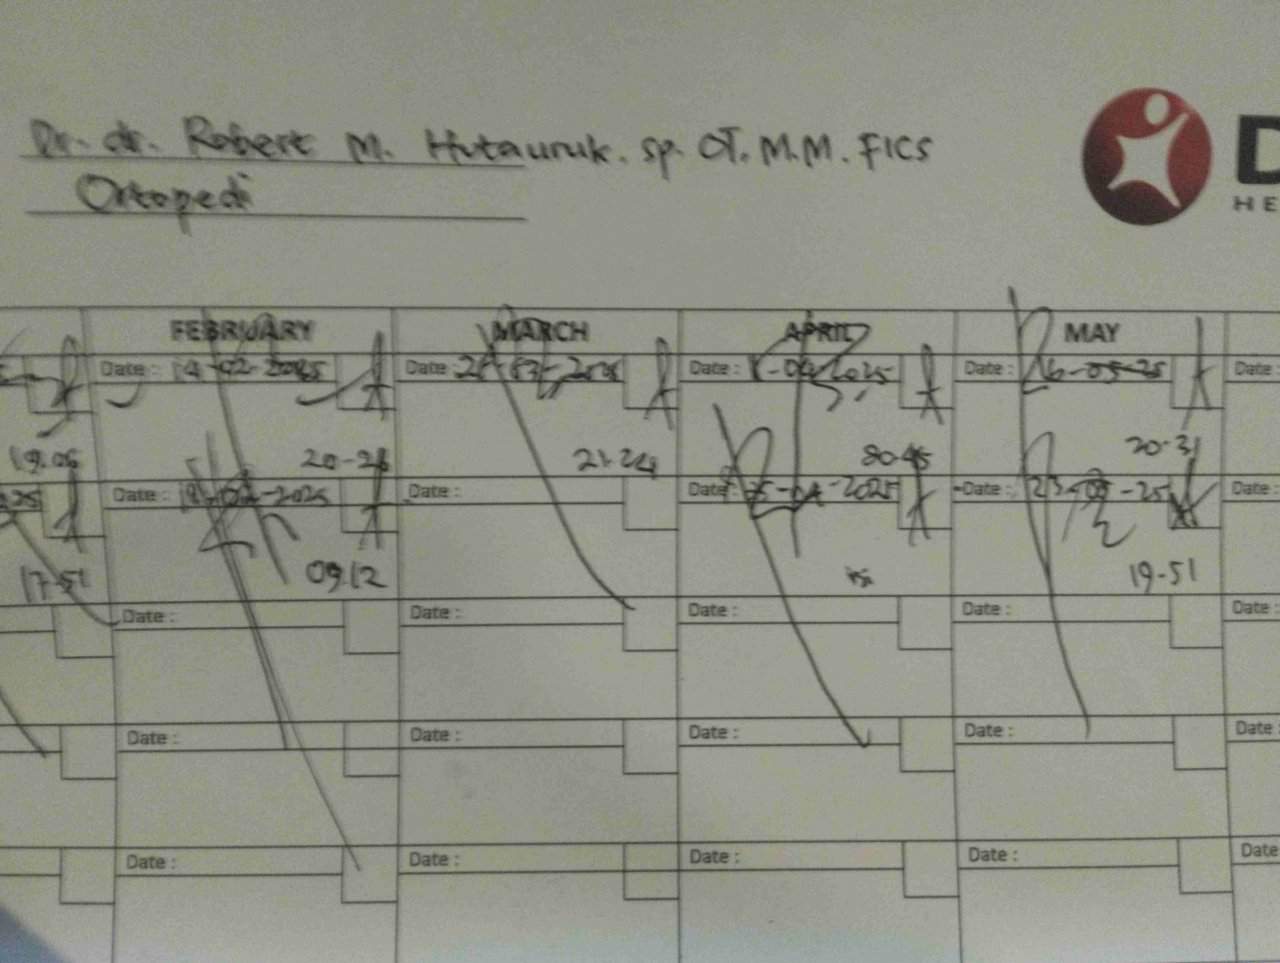 Dr. dr. Robert M. Hutauruk. sp. OT. M.M. FICS
Ortopedi
D
HE
FEBRUARY MARCH APRIL MAY
Date : 14-02-2025 Date : Date : Date : 16-05-25 Date :
19.06 20-26 21-24 20-45 20-31
Date : Date : Date : 25-04-2025 Date : 23-05-25 Date :
17-51 09.12 19-51
Date : Date : Date : Date : Date :
Date : Date : Date : Date : Date :
Date : Date : Date : Date : Date